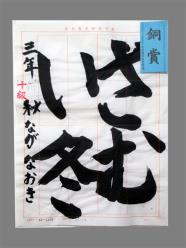 銅賞
さむ
い冬
十級
三年 秋なが なおき